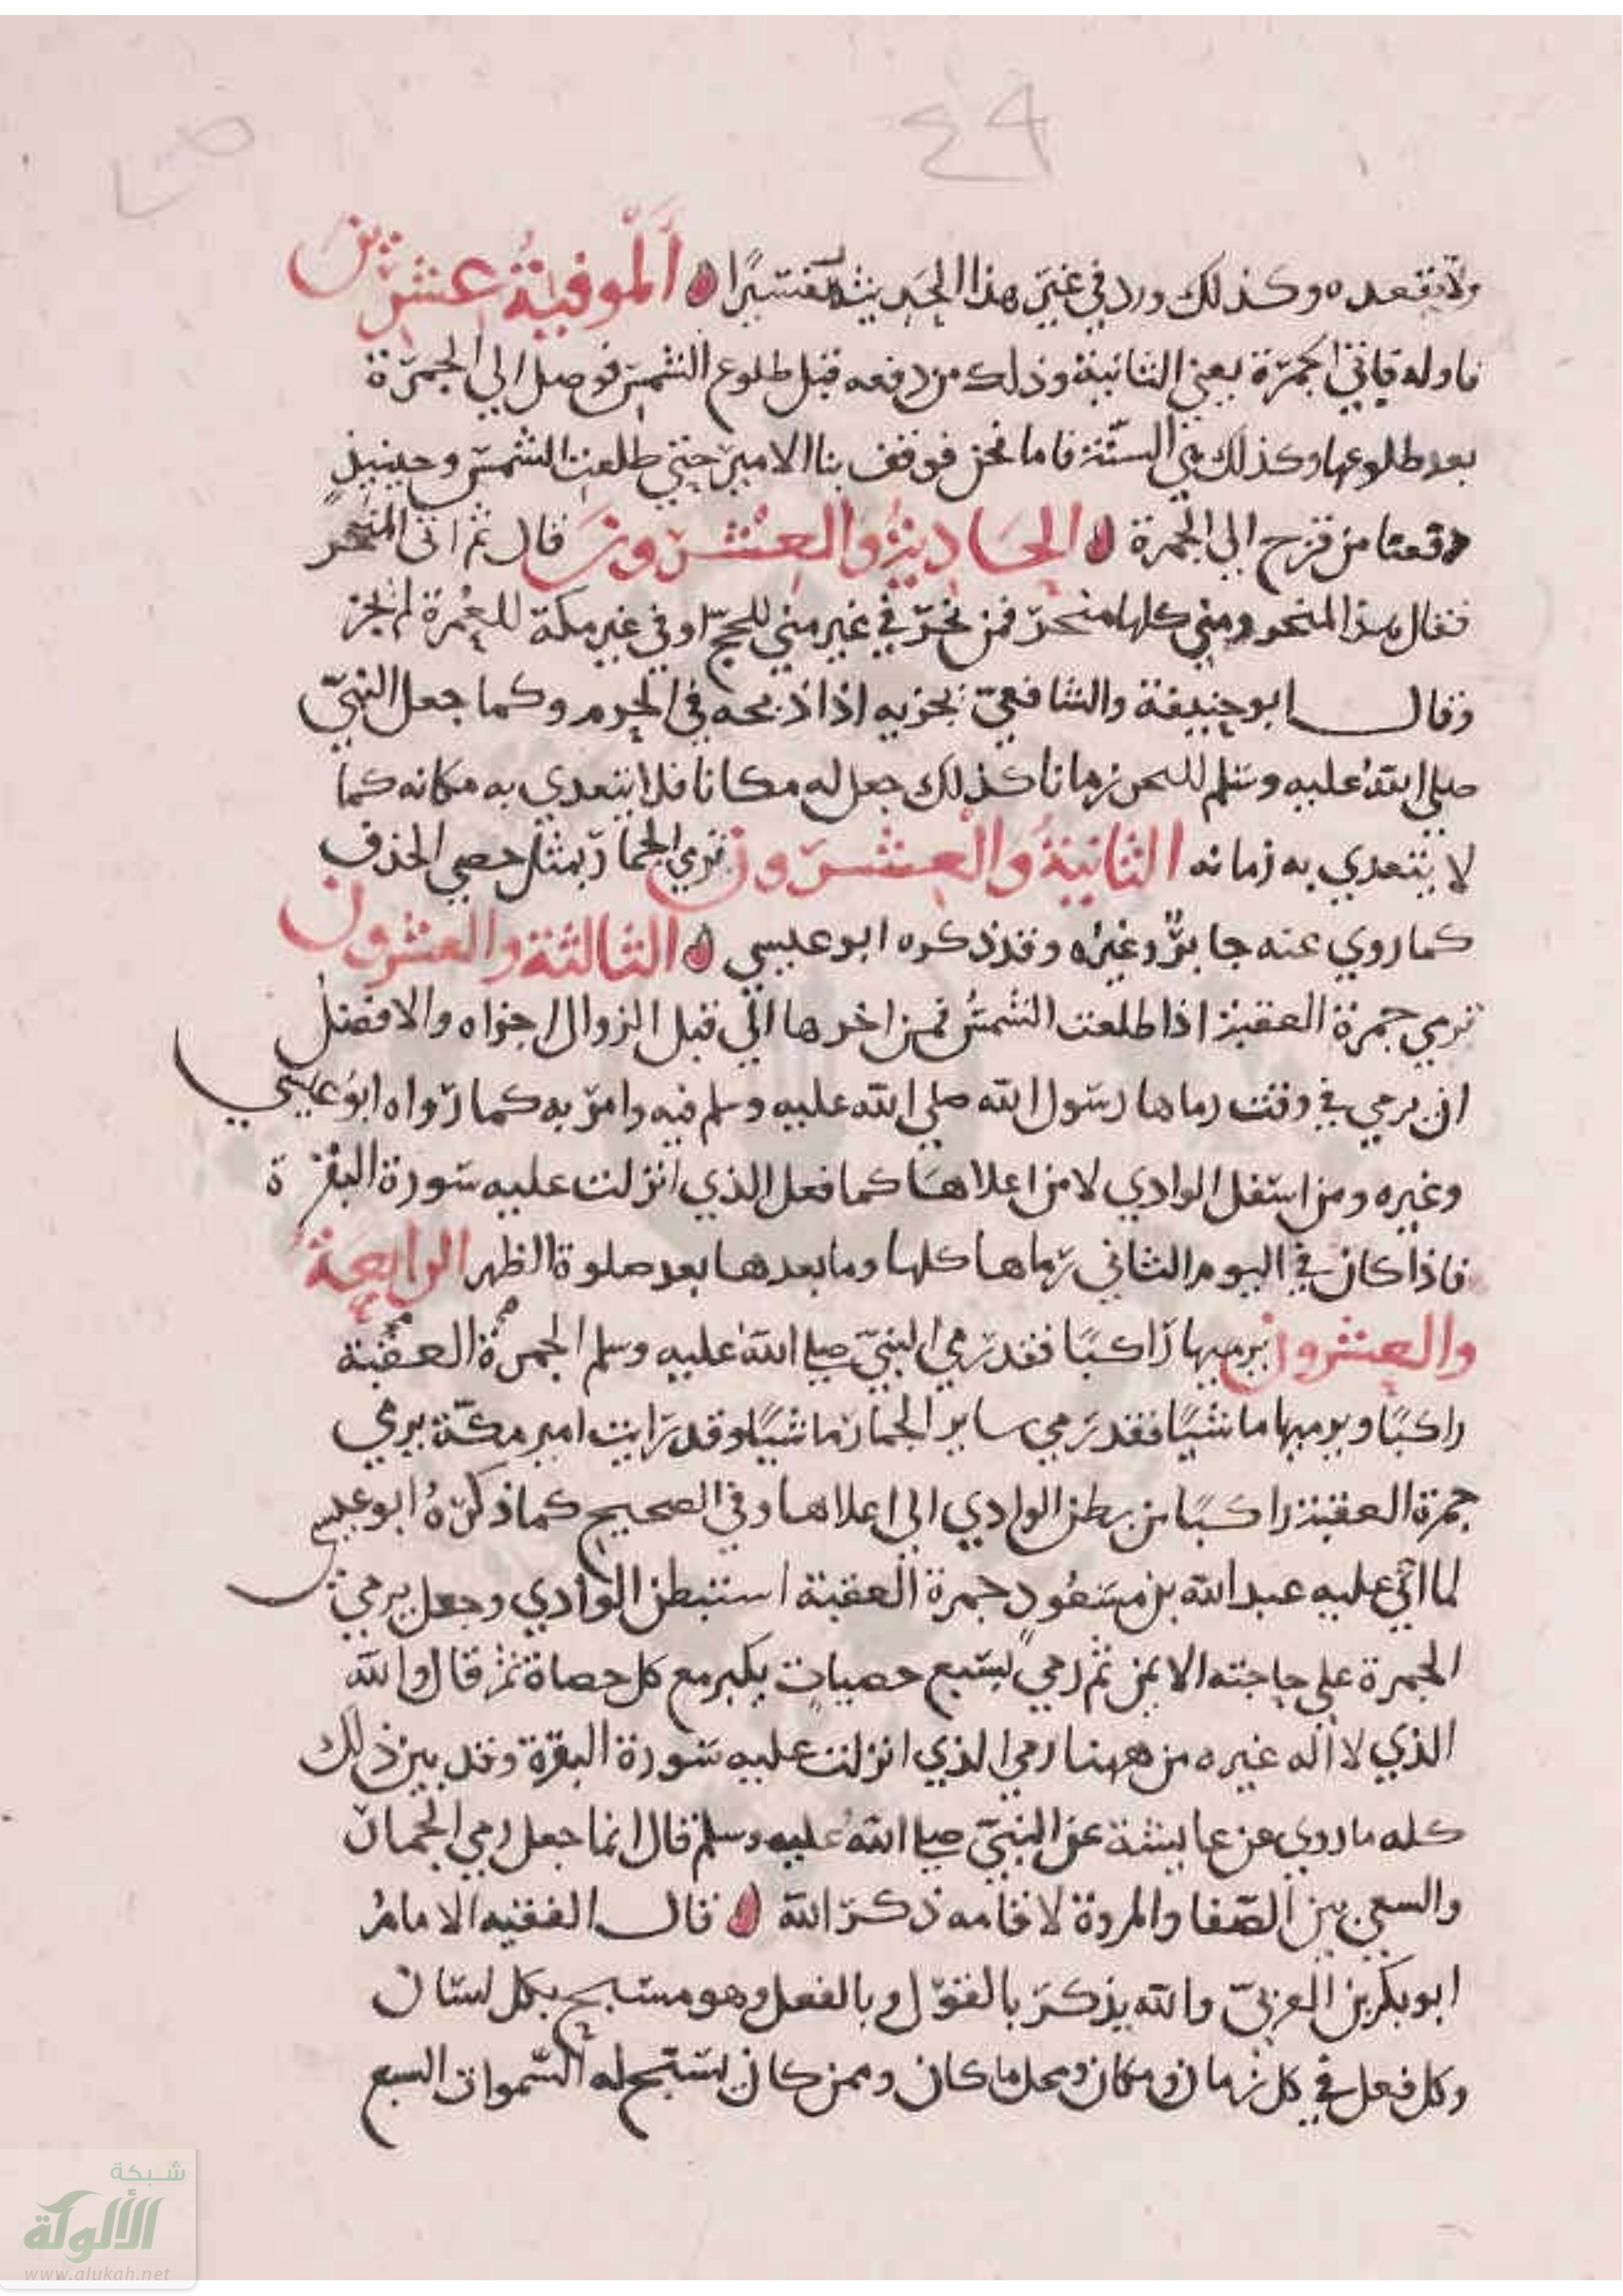 ص ٤٩
ولا تقعده وكذلك ورد في غير هذا الحديث مفسرًا ه اَلْموفيةُ عشرين
ما وله فاتي الجمرة يعني الثانية وذلك من دفعه قبل طلوع الشمس فوصل الي الجمرة
بعد طلوعها وكذلك هي السنّة فاما نحن فوقف بنا الامير حتي طلعت الشمس وحينيذٍ
دفعنا من قزح الي الجمرة ه الحاديةُ والعشرون قال ثم اتى المنحر
فقال هذا المنحر ومني كلها منحر فمن نحر في غير مني للحج او في غير مكة للعمرة لم يجز
وقال ابو حنيفة والشافعي يجزيه اذا ذبحه في الحرم وكما جعل النبيّ
صلي الله عليه وسلم للنحر زمانا كذلك جعل له مكانا فلا يتعدي به مكانه كما
لا يتعدي به زمانه الثانيةُ والعشرون ترمي الجمار بمثل حصي الخذف
كما روي عنه جابرٌ وغيره وقد ذكره ابو عيسي ه الثالثة والعشرون
ترمي جمرة العقبة اذا طلعت الشمسُ فمن اخرها الي قبل الزوال اجزاه والافضلُ
ان يرمي في وقت رماها رسول الله صلي الله عليه وسلم فيه وامر به كما رواه ابو عيسي
وغيره ومن اسفل الوادي لا من اعلاها كما فعل الذي انزلت عليه سورة البقرة
فاذا كان في اليوم الثاني رماها كلها وما بعدها بعد صلوة الظهر الرابعة
والعشرون يرميها راكبًا فقد رمي النبيّ صلي الله عليه وسلم الجمرة العقبة
راكبًا ويرميها ماشيًا فقد رمي ساير الجمار ماشيًا وقد رايت امير مكة يرمي
جمرة العقبة راكبًا من بطن الوادي الي اعلاها وفي الصحيح كما ذكرهُ ابو عيسي
لما اتي عليه عبد الله بن مسعودٍ جمرة العقبة استبطن الوادي وجعل يرمي
الجمرة علي حاجته الايمن ثم رمي بسبع حصياتٍ يكبر مع كل حصاة ثم قال والله
الذي لا اله غيره من ههنا رمي الذي انزلت عليه سورة البقرة وقد بين ذلك
كله ما روي عن عايشة عن النبيّ صلي الله عليه وسلم قال انما جعل رمي الجمار
والسعي بين الصفا والمروة لاقامه ذكر الله ه قال الفقيه الامامُ
ابو بكر بن العربيّ والله يذكر بالقول وبالفعل وهو مسبح بكل لسان
وكل فعل في كل زمان ومكان ومحل ما كان وممن كان يسبح له السموات السبع
شبكة
الألوكة
www.alukah.net